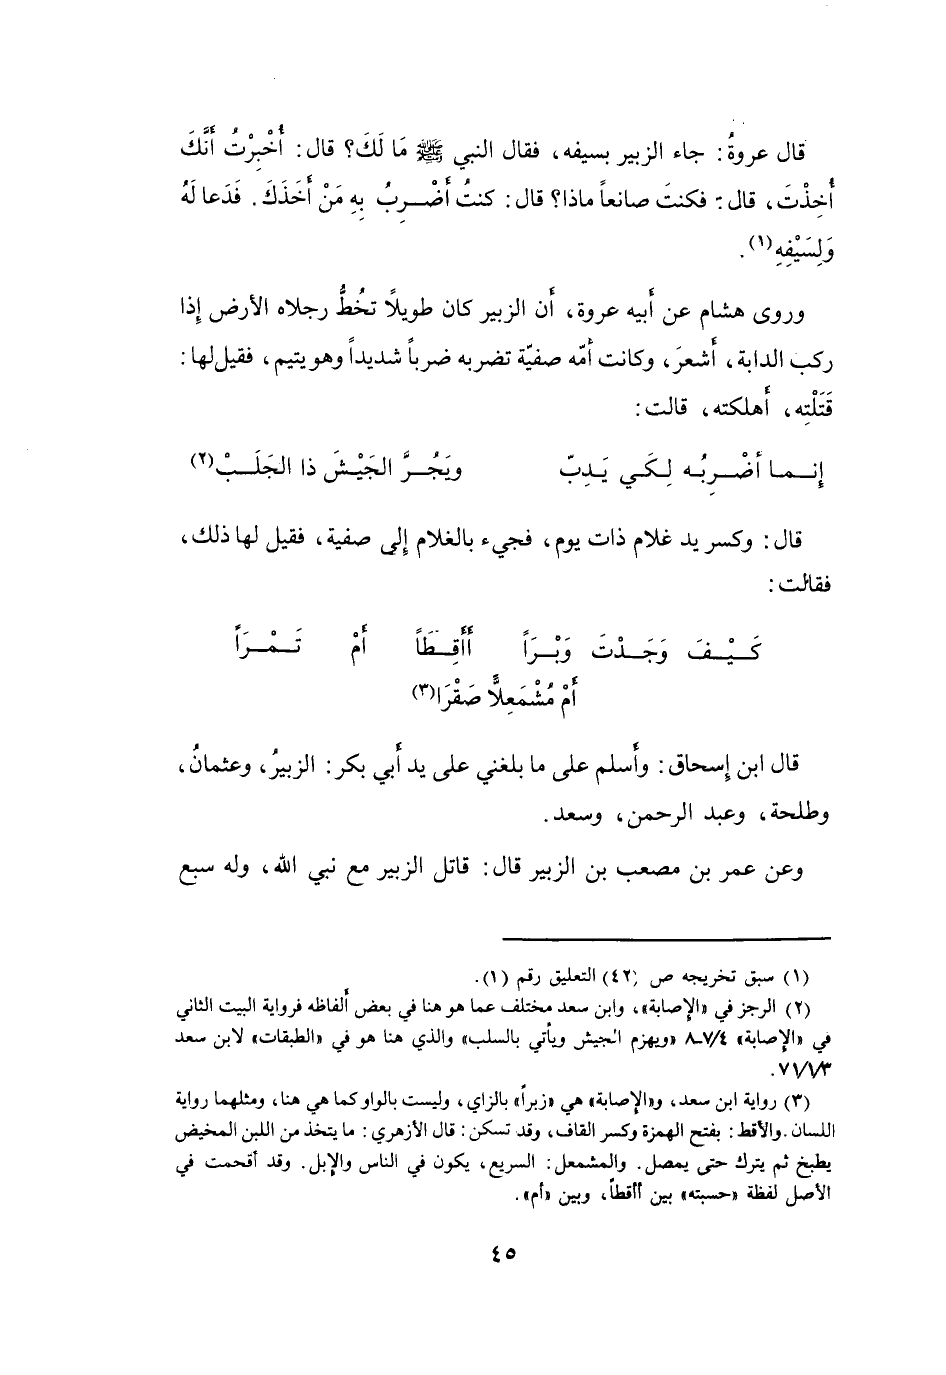 قال عروةُ: جاء الزبير بسيفه، فقال النبي ﷺ مَا لَكَ؟ قال: أُخْبِرْتُ أَنَّكَ
أُخِذْتَ، قال: فكنتَ صانعاً ماذا؟ قال: كنتُ أَضْرِبُ بِهِ مَنْ أَخَذَكَ. فَدَعا لَهُ
وَلِسَيْفِهِ(١).
وروى هشام عن أَبيه عروة، أَن الزبير كان طويلاً تخُطُّ رجلاه الأرض إِذا
ركب الدابة، أَشعرَ، وكانت أُمّه صفيّة تضربه ضرباً شديداً وهو يتيم، فقيل لها:
قَتَلْتِه، أَهلكته، قالت:
إِنما أَضْرِبُه لِكَي يَدِبّ ويَجُرَّ الجَيْشَ ذا الجَلَبْ(٢)
قال: وكسر يد غلام ذات يوم، فجيء بالغلام إِلى صفية، فقيل لها ذلك،
فقالت:
كَيْفَ وَجَدْتَ وَبْرَاً أَأَقِطَاً أَمْ تَمْرَاً
أَمْ مُشْمَعِلاًّ صَقْرَا(٣)
قال ابن إِسحاق: وأَسلم على ما بلغني على يد أَبي بكر: الزبيرُ، وعثمانُ،
وطلحة، وعبد الرحمن، وسعد.
وعن عمر بن مصعب بن الزبير قال: قاتل الزبير مع نبي الله، وله سبع
(١) سبق تخريجه ص (٤٢) التعليق رقم (١).
(٢) الرجز في «الإصابة»، وابن سعد مختلف عما هو هنا في بعض ألفاظه فرواية البيت الثاني
في «الإصابة» ٧/٤-٨ «ويهزم الجيش ويأتي بالسلب» والذي هنا هو في «الطبقات» لابن سعد
٧١/١/٣.
(٣) رواية ابن سعد، و«الإصابة» هي «زبراً» بالزاي، وليست بالواو كما هي هنا، ومثلهما رواية
اللسان. والأقط: بفتح الهمزة وكسر القاف، وقد تسكن: قال الأزهري: ما يتخذ من اللبن المخيض
يطبخ ثم يترك حتى يمصل. والمشمعل: السريع، يكون في الناس والإبل. وقد أقحمت في
الأصل لفظة «حسبته» بين أأقطاً، وبين «أم».
٤٥